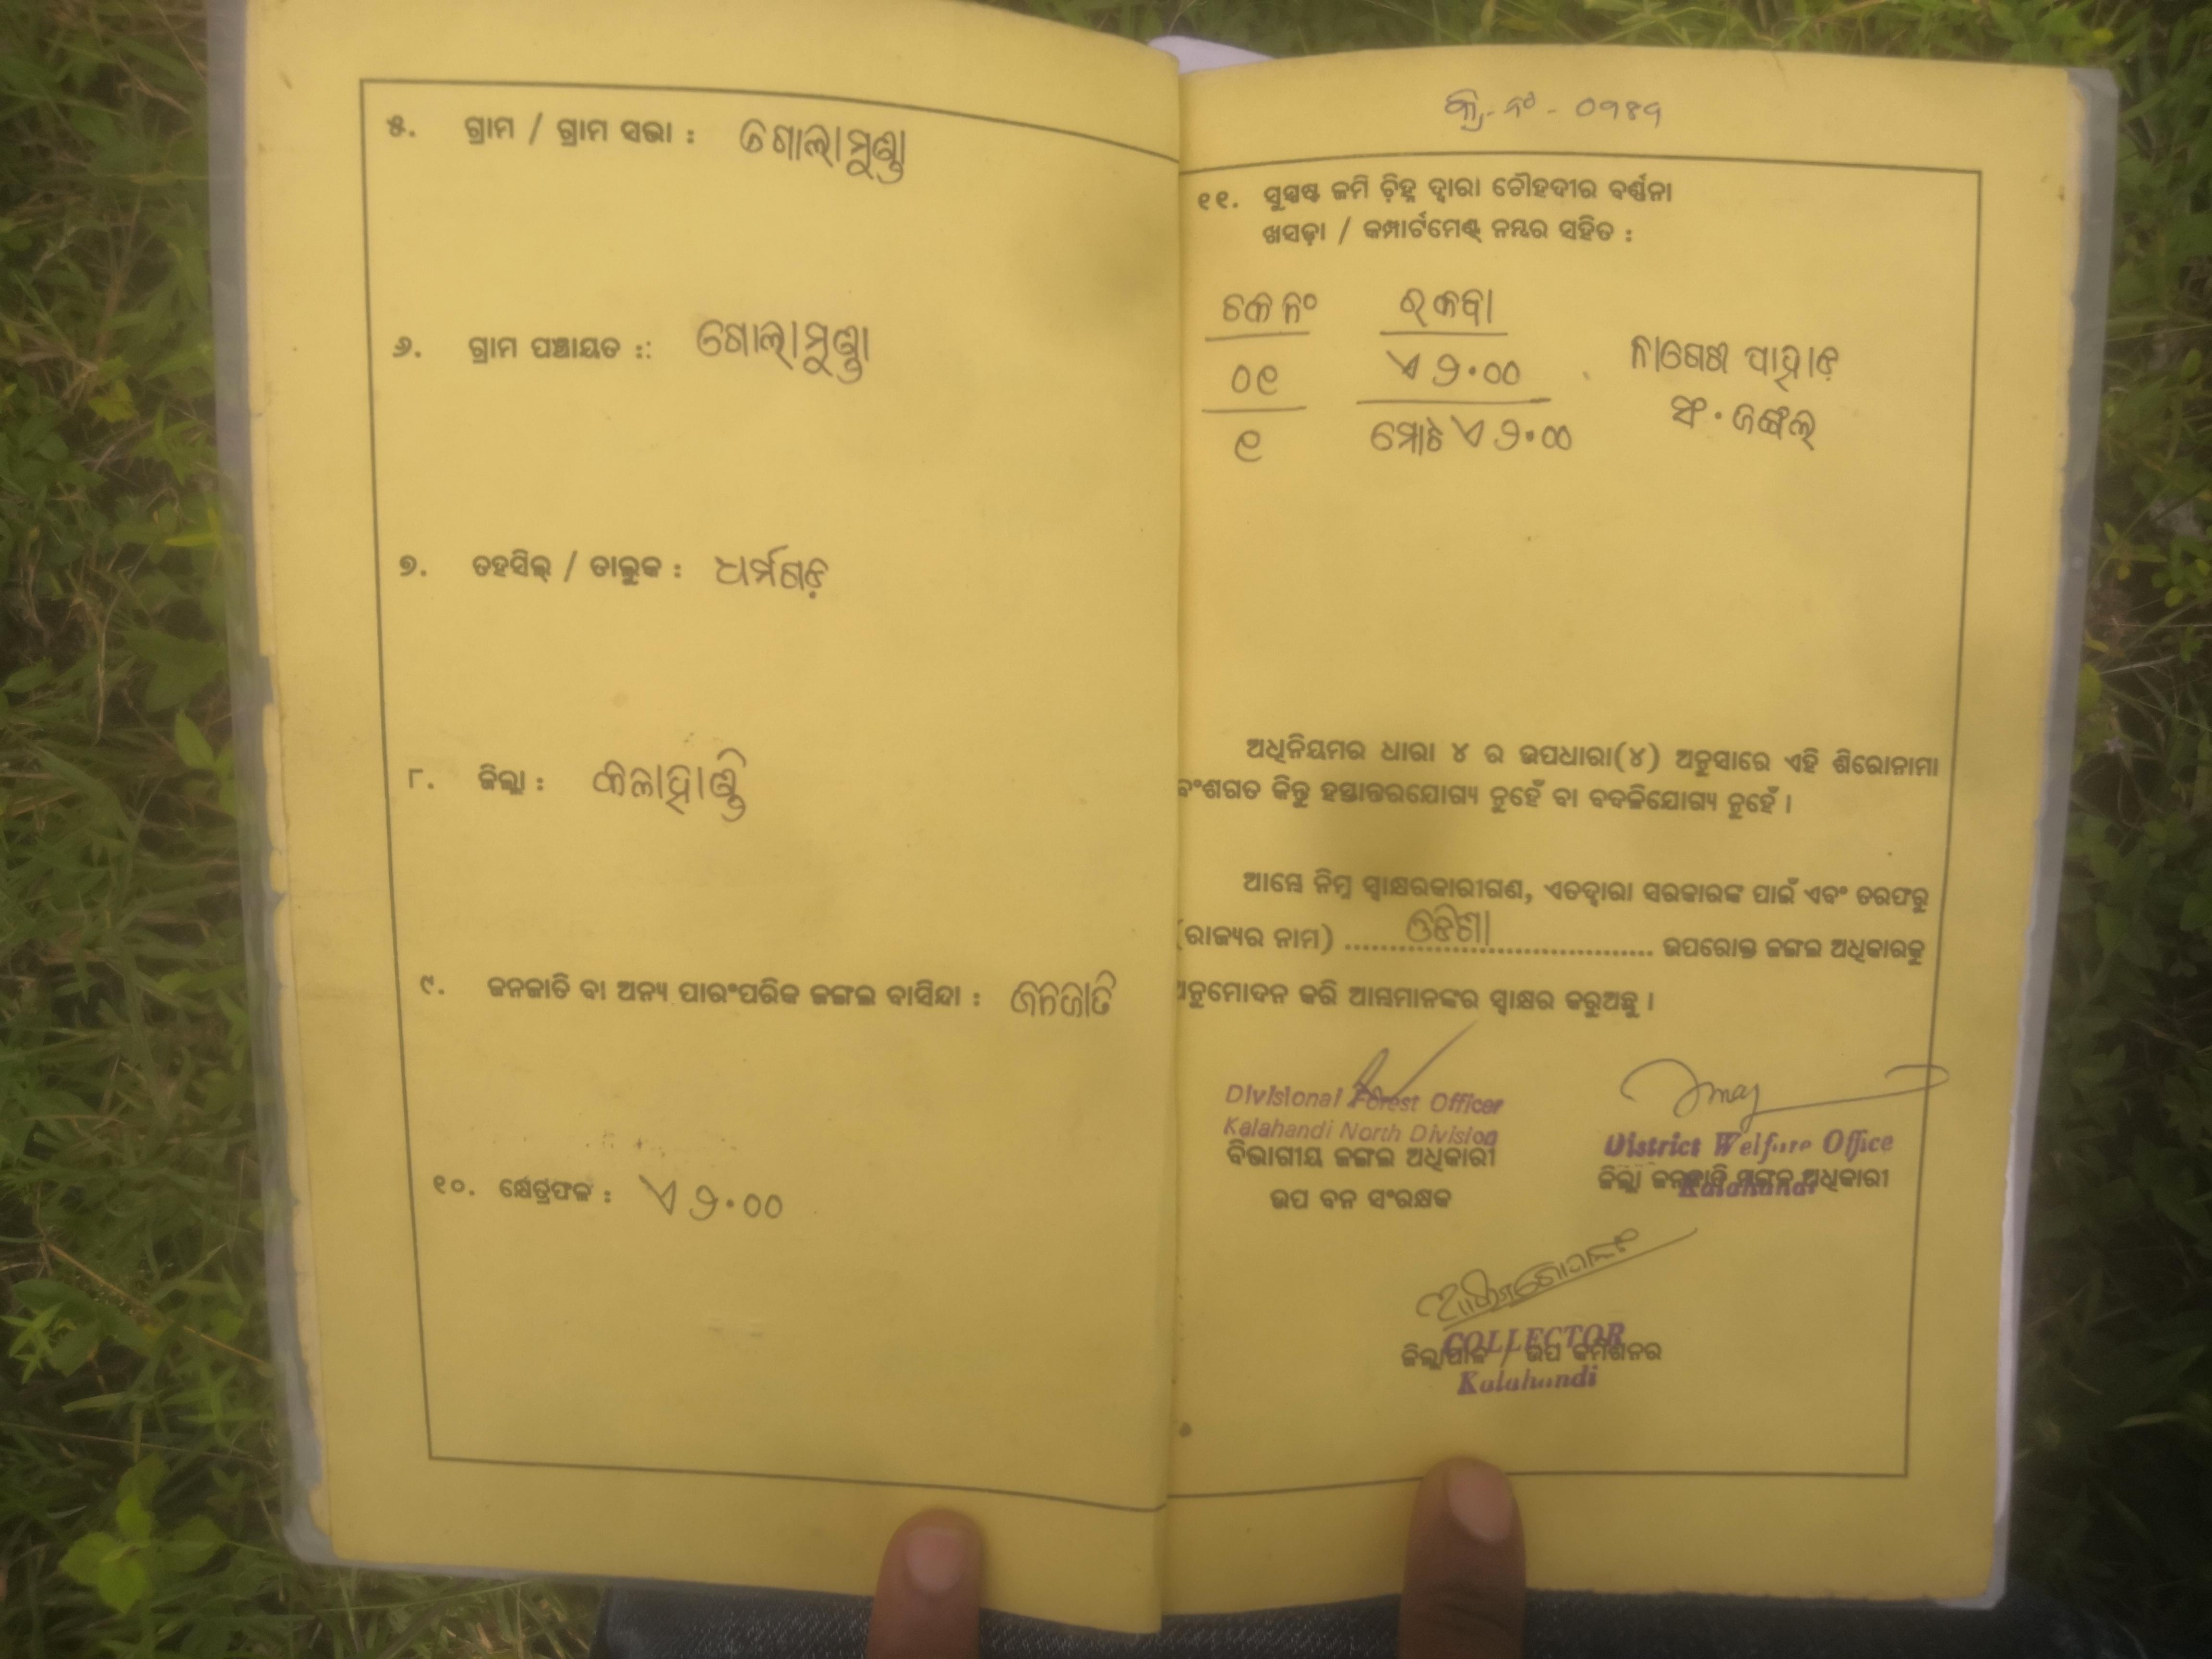 ୫. ଗ୍ରାମ / ଗ୍ରାମ ସଭା : ଗୋଲାମୁଣ୍ଡା
୬. ଗ୍ରାମ ପଞ୍ଚାୟତ :: ଗୋଲାମୁଣ୍ଡା
୭. ତହସିଲ୍ / ତାଲୁକ : ଧର୍ମଗଡ଼
୮. ଜିଲ୍ଲା : କଳାହାଣ୍ଡି
୯. ଜନଜାତି ବା ଅନ୍ୟ ପାରଂପରିକ ଜଙ୍ଗଲ ବାସିନ୍ଦା : ଜନଜାତି
୧୦. କ୍ଷେତ୍ରଫଳ : ଏ ୨.୦୦
କ୍ର. ନଂ - ୦୭୫୭
୧୧. ସୁସ୍ପଷ୍ଟ ଜମି ଚ଼ିହ୍ନ ଦ୍ୱାରା ଚୌହଦୀର ବର୍ଣ୍ଣନା
ଖସଡ଼ା / କମ୍ପାର୍ଟମେଣ୍ଟ୍ ନମ୍ବର ସହିତ :
ନଂ ରକବା
୦୧ ଏ ୨.୦୦ ପାହାଡ଼
୧ ମୋଟ ଏ ୨.୦୦ ସଂ. ଜଙ୍ଗଲ
ଅଧିନିୟମର ଧାରା ୪ ର ଉପଧାରା(୪) ଅନୁସାରେ ଏହି ଶିରୋନାମା
ବଂଶଗତ କିନ୍ତୁ ହସ୍ତାନ୍ତରଯୋଗ୍ୟ ନୁହେଁ ବା ବଦଳିଯୋଗ୍ୟ ନୁହେଁ ।
ଆମ୍ଭେ ନିମ୍ନ ସ୍ୱାକ୍ଷରକାରୀଗଣ, ଏତଦ୍ୱାରା ସରକାରଙ୍କ ପାଇଁ ଏବଂ ତରଫରୁ
(ରାଜ୍ୟର ନାମ) ଓଡିଶା ଉପରୋକ୍ତ ଜଙ୍ଗଲ ଅଧିକାରକୁ
ଅନୁମୋଦନ କରି ଆମ୍ଭମାନଙ୍କର ସ୍ୱାକ୍ଷର କରୁଅଛୁ ।
Divisional Forest Officer
Kalahandi North Division
ବିଭାଗୀୟ ଜଙ୍ଗଲ ଅଧିକାରୀ
ଉପ ବନ ସଂରକ୍ଷକ
District Welfare Office
Kalahandi
ଜିଲ୍ଲା ଜନଜାତି ମଙ୍ଗଳ ଅଧିକାରୀ
COLLECTOR
ଜିଲ୍ଲାପାଳ / ଉପ କମିଶନର
Kalahandi